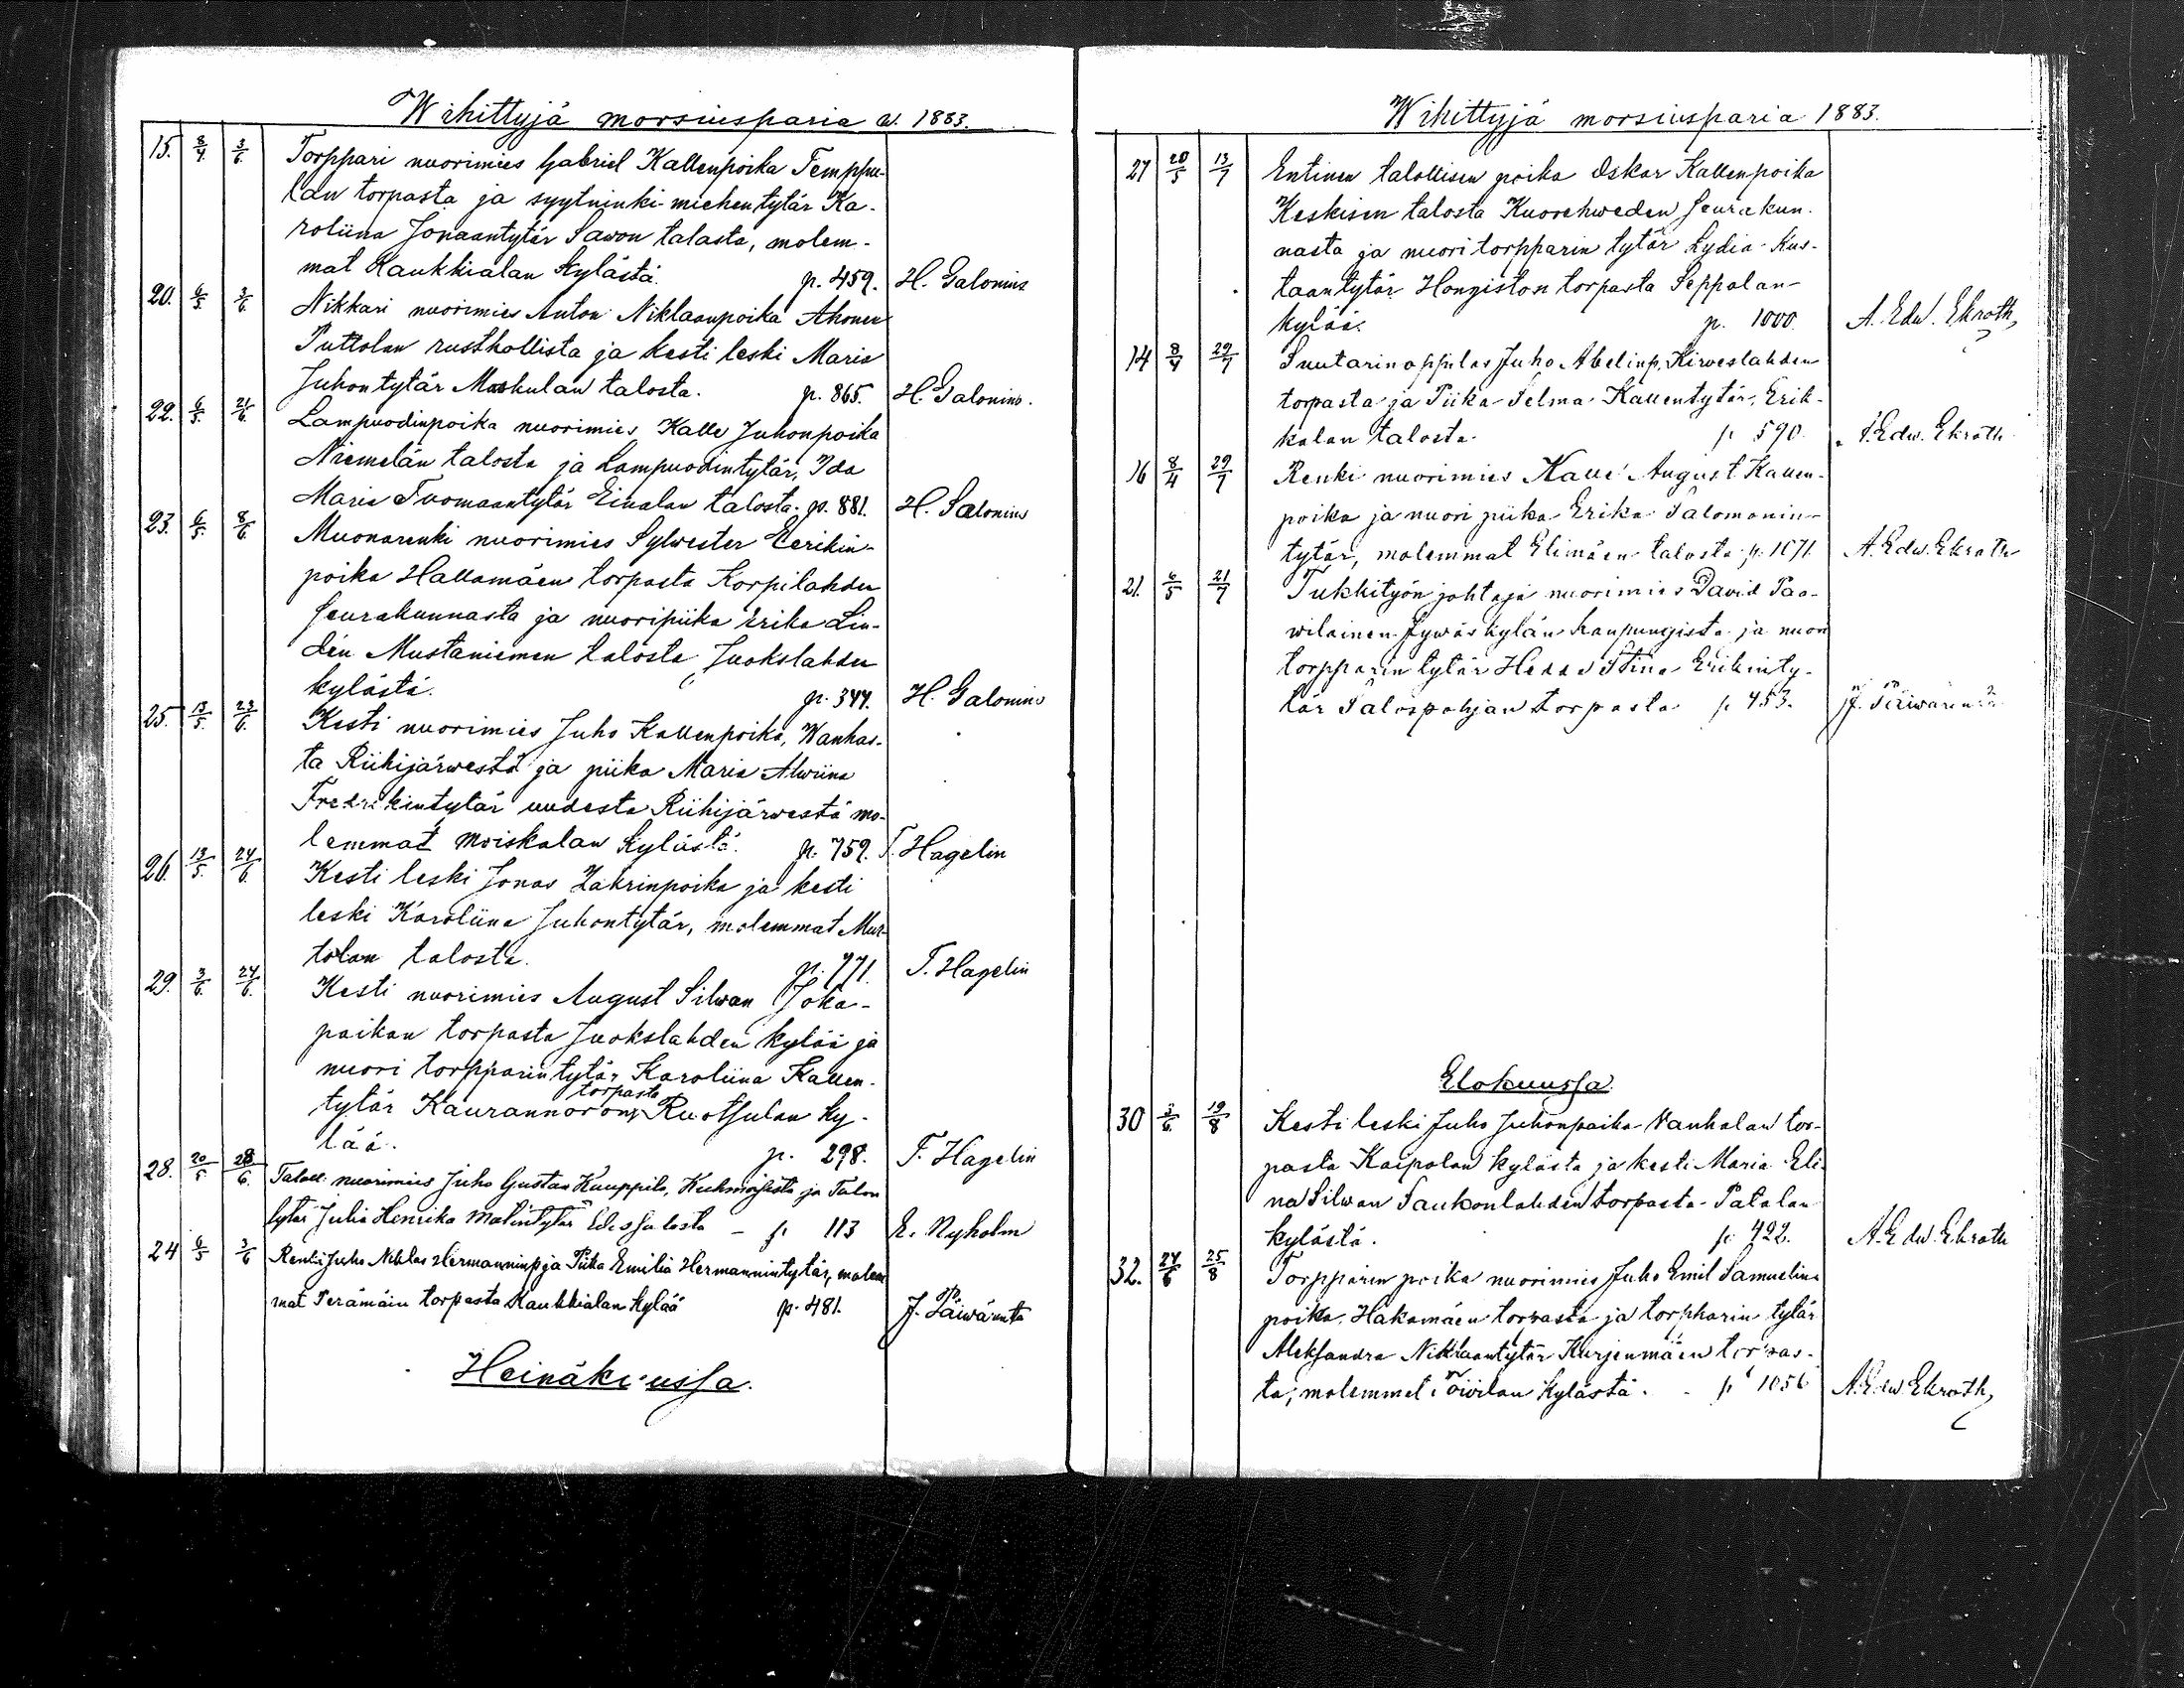 Wihittyjä morsiusparia v. 1883.
15. 8/4 3/6 Torppari nuorimies Gabriel Kallenpoika Temppu-
lan torpasta ja syytninki-miehentytär Ka-
roliina Jonaantytär Sawon talasta, molem-
mat Kaukkialan kylästä. p. 459. H. Salonius
20. 6/5. 3/6 Nikkari nuorimies Anton Niklaanpoika Ahonen
Puttolan rusthollista ja kesti leski Maria
Juhontytär Maskulan talosta. p. 865. H. Salonius.
22. 6/5. 21/6. Lampuodinpoika nuorimies Kalle Juhonpoika
Niemelän talosta ja Lampuodintytär, Ida
Maria Tuomaantytär Einalan talosta. p. 881. H. Salonius
23. 6/5. 8/6. Muonarenki nuorimies Sylwester Eerikin-
poika Hallamäen torpasta Korpilahden
seurakunnasta ja nuoripiika Erika Lin-
dén Mustaniemen talosta Juokslahden
kylästä. p. 344. H. Salonius
25. 13/5. 23/6. Kesti nuorimies Juho Kallenpoika, Wanhas-
ta Riihijärwestä ja piika Maria Alwiina
Fredrikintytär uudesta Riihijärwestä mo-
lemmat Moiskalan kylästä. p. 759. F. Hagelin
26. 13/5. 24/6. Kesti leski Jonas Zakrinpoika ja kesti
leski Karoliina Juhontytär, molemmat Mur-
tolan talosta. p. 771. F. Hagelin
29. 3/6. 24/6. Kesti nuorimies August Silwan Joka-
paikan torpasta Juokslahden kylää ja
nuori torpparintytär Karoliina Kallen-
torpasta
tytär Kaurannoron, Ruotsulan ky-
lää. p. 298. F. Hagelin
28. 20/5 28/6. Taloll. nuorimies Juho Gustav Kauppila, Kuhmoisista ja Talon
tytär Julia Henrika Matintytär Edessalosta – p. 113 E. Nyholm
24 6/5 3/6 Renki Juho Niklas Hermanninp. ja Piika Emilia Hermannintytär, molem
mat Perämäen torpasta Kaukkialan kylää p. 481. J. Päiwärinta
Heinäkuussa.
Wihittyjä morsiusparia 1883.
27 20/5 13/7 Entinen talollisen poika Oskar Kallenpoika
Keskisen talosta Kuorehweden seurakun-
nasta ja nuori torpparin tytär Lydia Kus-
taantytär Hongiston torpasta Seppolan-
kylää. p. 1000. A. Edw. Ekroth,
14 8/4 29/7 Suutarinoppilas Juho Abelinp. Kirweslahden
torpasta ja Piika Selma Kallentytär, Erik-
kalan talosta. p 590. A. Edw. Ekroth
16 8/4 29/7 Renki nuorimies Kalle August Kallen-
poika ja nuori piika Erika Salomonin-
tytär, molemmat Elimäen talosta. p. 1071. A. Edw. Ekroth
21. 6/5 21/7 Tukkityön johtaja nuorimies David Paa-
wilainen Jywäskylän kaupungista ja nuori
torpparin tytär Hedda Stina Erikinty-
tär Salospohjan torpasta p 453. J. Päiwärinta
Elokuussa.
30 3/6. 19/8 Kesti leski Juho Juhonpoika Vanhalan tor-
pasta Kaipolan kylästä ja kesti Maria Eli-
na Silwan Saukonlahden torpasta Patalan
kylästä. p. 422. A. Edw. Ekroth
32. 24/6 25/8 Torpparin poika nuorimies Juho Emil Samuelin
poika. Hakamäen torpasta ja torpparin tytär
Aleksandra Niklaantytär Kurjenmäen torpas-
ta, molemmat kylästä. p 1056 A. Edw. Ekroth,